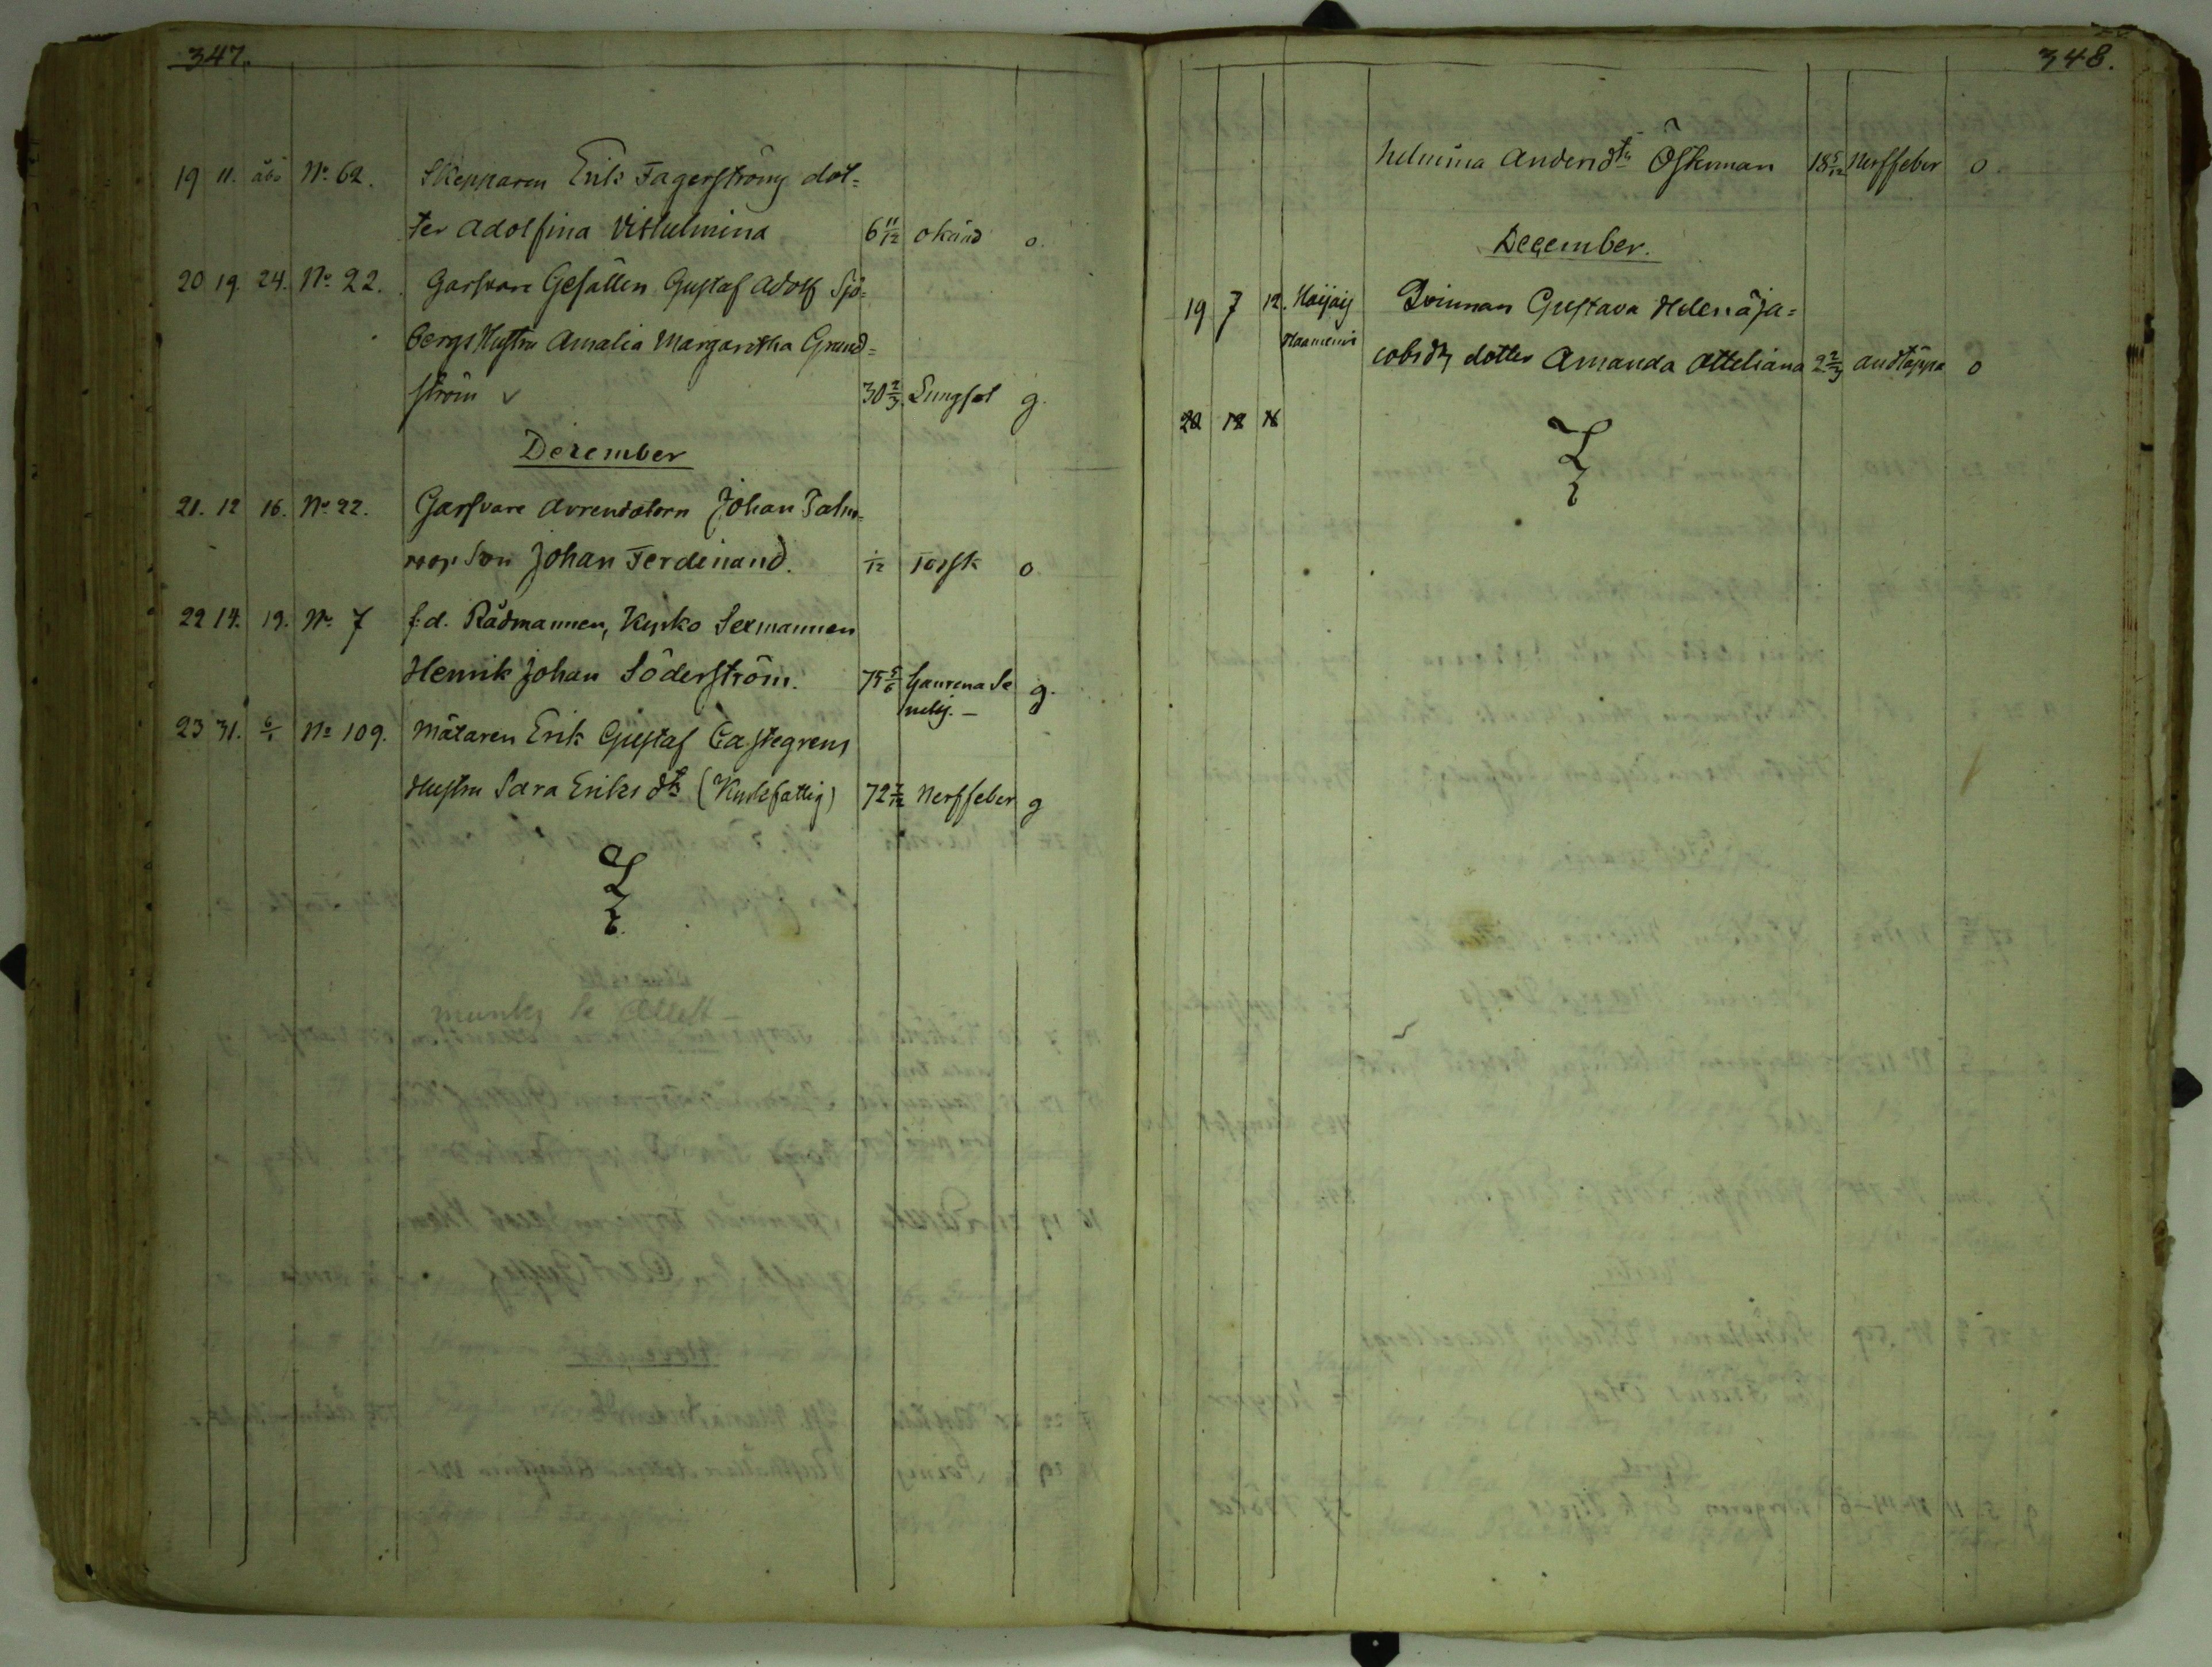 347.
19 11. åbo No. 62. Skepparen Erik Fagerströms dot=
ter Adolfina Vilhelmina 6 11/12 okänd o.
20 19. 24. No. 22. Garfvare Gesällen Gustaf Adolf Sjö=
bergs Hustru Amalia Margaretha Grund=
ström v 30 2/3. Lungsot g.
December
21. 12 16. No. 22. Garfvare Arrendatorn Johan Palm=
Son Johan Ferdinand. 1/12 Torsk o
22 14. 19. No. 7 f.d. Rådmannen, Kyrko Sexmannen
Henrik Johan Söderström. 75 5/6 g.
23 31. 6/1 No 109. Mätaren Erik Gustaf Castegrens
Hustru Sara Eriksdtr (Kyrkfattig) 72 7/12 Nerffeber g
348.
helmina Andersdtr Österman 18 5/12 Nerffeber o.
December.
19 7 12. Haijais Qvinnan Gustava Helena Ja=
Haameniwi cobsdtr dotter Amanda Otteliana 2 2/3 andtäppa o
20 18 18